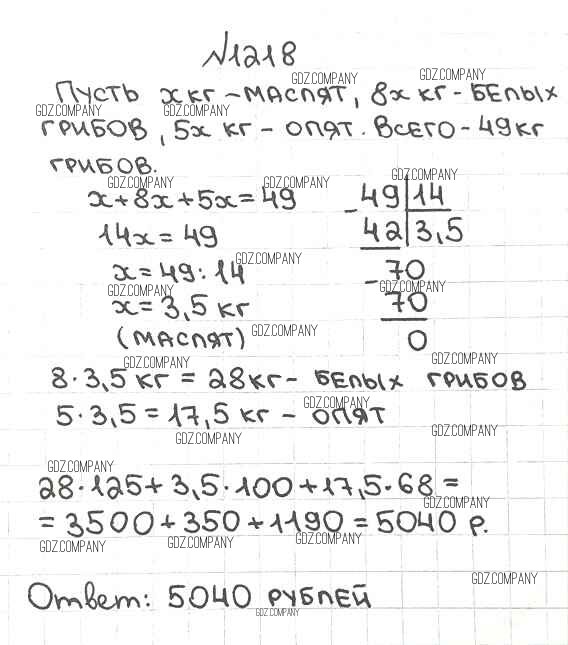 №1218
GDZ.COMPANY GDZ.COMPANY
Пусть х кг – маслят, 8х кг – белых
GDZ.COMPANY GDZ.COMPANY
грибов, 5х кг – опят. Всего – 49 кг
грибов.
GDZ.COMPANY GDZ.COMPANY GDZ.COMPANY
х + 8х + 5х = 49
14х = 49
GDZ.COMPANY
х = 49 : 14
GDZ.COMPANY
х = 3,5 кг
(маслят) GDZ.COMPANY
- 49 | 14
42 | 3,5
- 70
GDZ.COMPANY
70
0
GDZ.COMPANY GDZ.COMPANY
8 · 3,5 кг = 28 кг – белых грибов
GDZ.COMPANY
5 · 3,5 = 17,5 кг – опят
GDZ.COMPANY GDZ.COMPANY
GDZ.COMPANY
28 · 125 + 3,5 · 100 + 17,5 · 68 =
GDZ.COMPANY
= 3500 + 350 + 1190 = 5040 р.
GDZ.COMPANY GDZ.COMPANY GDZ.COMPANY
GDZ.COMPANY
Ответ: 5040 рублей
GDZ.COMPANY